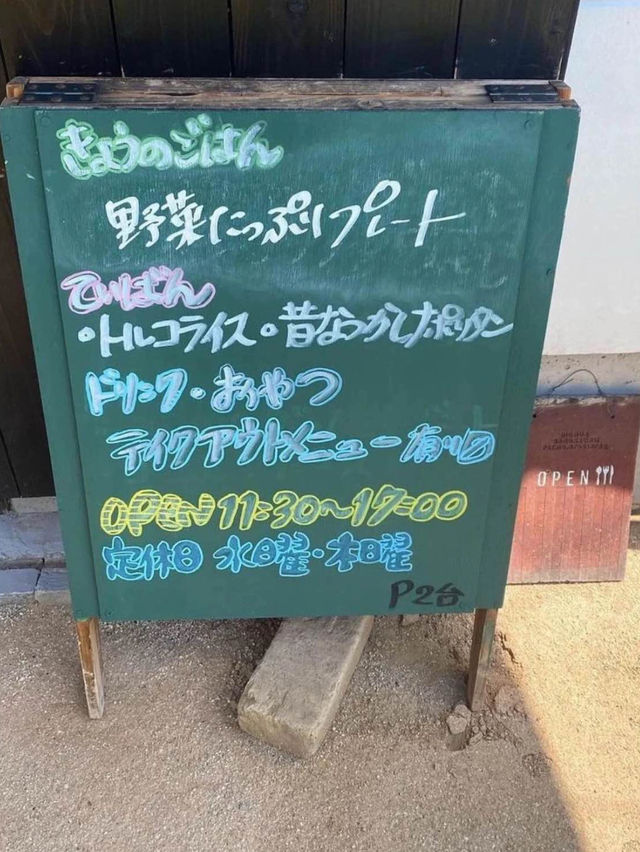 きょうのごはん
野菜たっぷりプレート
ていばん
・トルコライス・昔なつかしナポリタン
ドリンク・おやつ
テイクアウトメニュー有り〼
OPEN 11:30〜17:00
定休日 水曜・木曜
P2台
OPEN